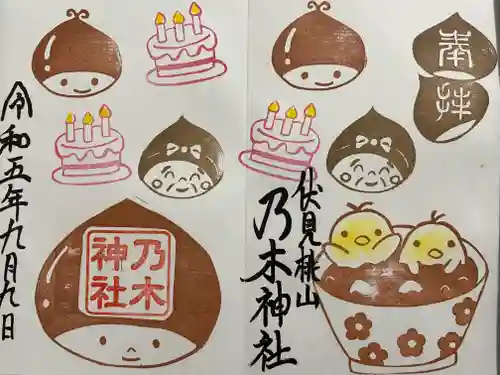 奉拝
伏見桃山
乃木神社
乃木
神社
令和五年九月九日